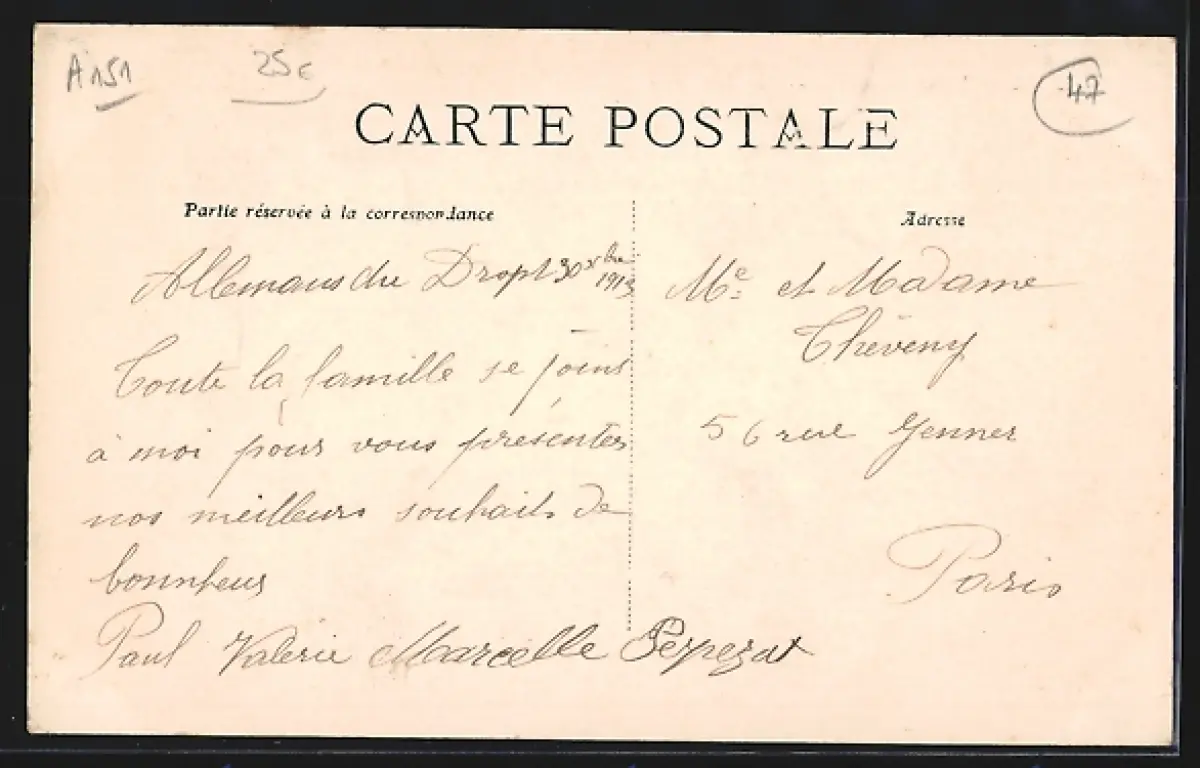 A151
25€
47
CARTE POSTALE
Partie réservée à la correspondance
Adresse
Allemans du Dropt 30 Xbre
1913
Toute la famille se joins
à moi pour vous présenter
nos meilleurs souhaits de
bonnheur
Paul Valérie Marcelle
Mr et Madame
Théveny
56 rue Jenner
Paris